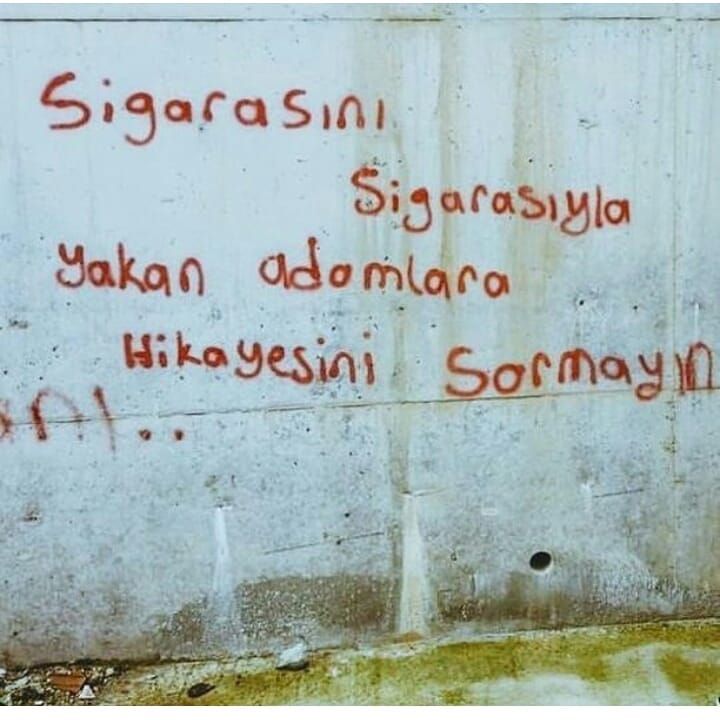 Sigarasını
Sigarasıyla
yakan adamlara
Hikayesini Sormayın